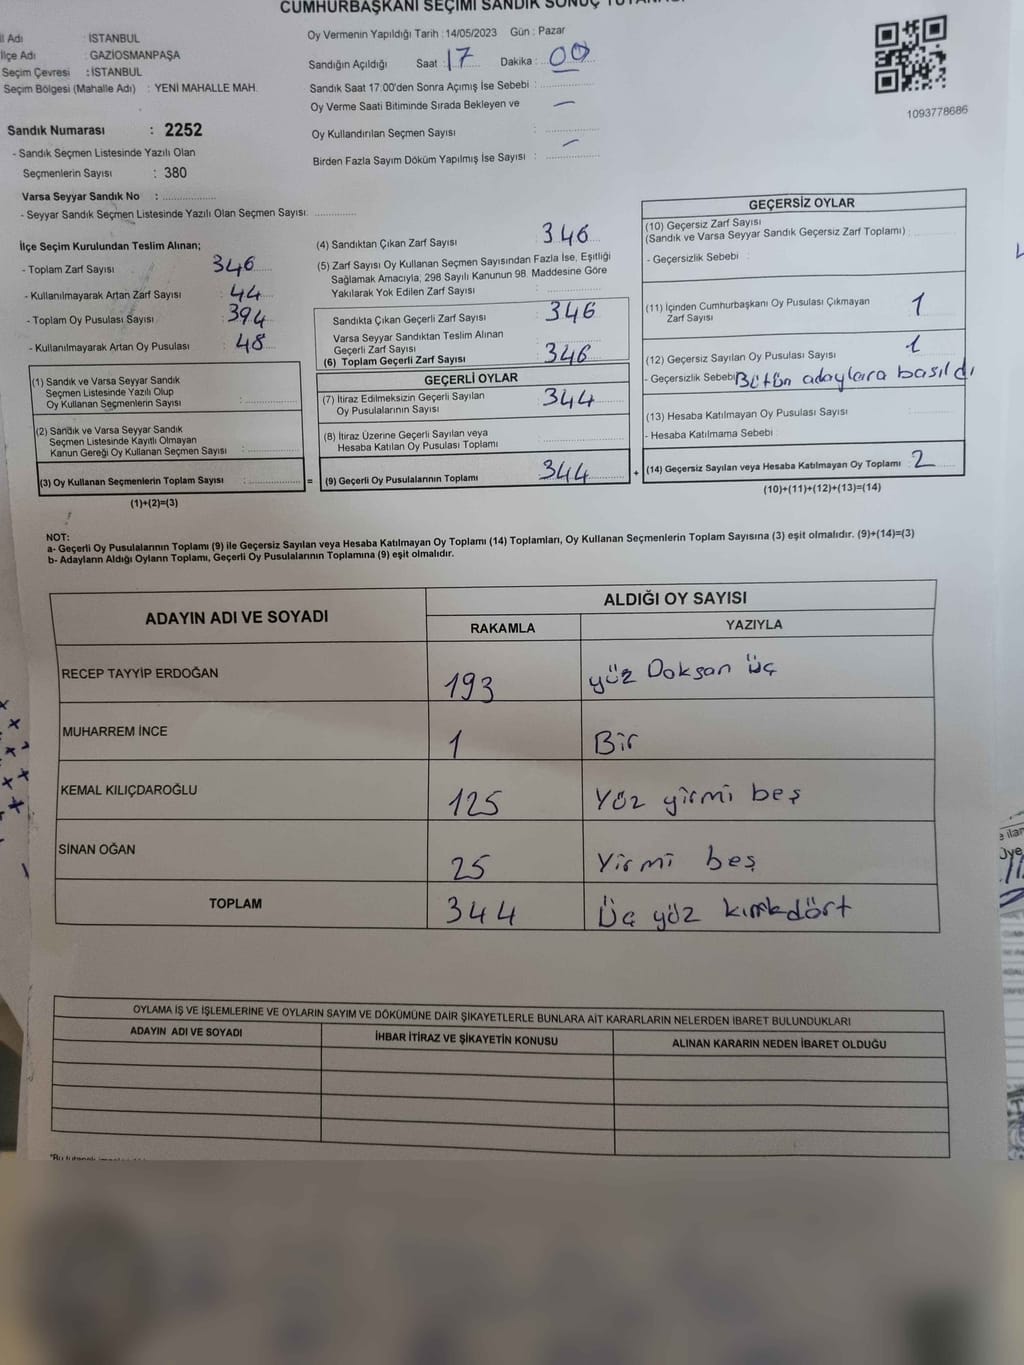 CUMHURBAŞKANI SEÇİMİ SANDIK SONUÇ
İl Adı : İSTANBUL
İlçe Adı : GAZİOSMANPAŞA
Seçim Çevresi : İSTANBUL
Seçim Bölgesi (Mahalle Adı) : YENİ MAHALLE MAH.
Sandık Numarası : 2252
- Sandık Seçmen Listesinde Yazılı Olan
Seçmenlerin Sayısı : 380
Varsa Seyyar Sandık No :
- Seyyar Sandık Seçmen Listesinde Yazılı Olan Seçmen Sayısı:
Oy Vermenin Yapıldığı Tarih : 14/05/2023 Gün : Pazar
Sandığın Açıldığı Saat : 17 Dakika : 00
Sandık Saat 17:00'den Sonra Açımış İse Sebebi :
Oy Verme Saati Bitiminde Sırada Bekleyen ve —
Oy Kullandırılan Seçmen Sayısı :
Birden Fazla Sayım Döküm Yapılmış İse Sayısı : —
1093778686
İlçe Seçim Kurulundan Teslim Alınan;
- Toplam Zarf Sayısı : 346
- Kullanılmayarak Artan Zarf Sayısı : 44
- Toplam Oy Pusulası Sayısı : 394
- Kullanılmayarak Artan Oy Pusulası : 48
(1) Sandık ve Varsa Seyyar Sandık
Seçmen Listesinde Yazılı Olup
Oy Kullanan Seçmenlerin Sayısı :
(2) Sandık ve Varsa Seyyar Sandık
Seçmen Listesinde Kayıtlı Olmayan
Kanun Gereği Oy Kullanan Seçmen Sayısı :
(3) Oy Kullanan Seçmenlerin Toplam Sayısı :
(1)+(2)=(3)
=
(4) Sandıktan Çıkan Zarf Sayısı : 346
(5) Zarf Sayısı Oy Kullanan Seçmen Sayısından Fazla İse, Eşitliği
Sağlamak Amacıyla, 298 Sayılı Kanunun 98. Maddesine Göre
Yakılarak Yok Edilen Zarf Sayısı :
Sandıkta Çıkan Geçerli Zarf Sayısı : 346
Varsa Seyyar Sandıktan Teslim Alınan
Geçerli Zarf Sayısı :
(6) Toplam Geçerli Zarf Sayısı : 346
GEÇERLİ OYLAR
(7) İtiraz Edilmeksizin Geçerli Sayılan
Oy Pusulalarının Sayısı : 344
(8) İtiraz Üzerine Geçerli Sayılan veya
Hesaba Katılan Oy Pusulası Toplamı :
(9) Geçerli Oy Pusulalarının Toplamı : 344
+
GEÇERSİZ OYLAR
(10) Geçersiz Zarf Sayısı
(Sandık ve Varsa Seyyar Sandık Geçersiz Zarf Toplamı) :
- Geçersizlik Sebebi :
(11) İçinden Cumhurbaşkanı Oy Pusulası Çıkmayan
Zarf Sayısı : 1
(12) Geçersiz Sayılan Oy Pusulası Sayısı : 1
- Geçersizlik Sebebi Bütün adaylara basıldı
(13) Hesaba Katılmayan Oy Pusulası Sayısı :
- Hesaba Katılmama Sebebi :
(14) Geçersiz Sayılan veya Hesaba Katılmayan Oy Toplamı : 2
(10)+(11)+(12)+(13)=(14)
NOT:
a- Geçerli Oy Pusulalarının Toplamı (9) ile Geçersiz Sayılan veya Hesaba Katılmayan Oy Toplamı (14) Toplamları, Oy Kullanan Seçmenlerin Toplam Sayısına (3) eşit olmalıdır. (9)+(14)=(3)
b- Adayların Aldığı Oyların Toplamı, Geçerli Oy Pusulalarının Toplamına (9) eşit olmalıdır.
ADAYIN ADI VE SOYADI ALDIĞI OY SAYISI
RAKAMLA YAZIYLA
RECEP TAYYİP ERDOĞAN 193 yüz Doksan üç
MUHARREM İNCE 1 Bir
KEMAL KILIÇDAROĞLU 125 Yüz yirmi beş
SİNAN OĞAN 25 Yirmi beş
TOPLAM 344 Üç yüz kırkdört
OYLAMA İŞ VE İŞLEMLERİNE VE OYLARIN SAYIM VE DÖKÜMÜNE DAİR ŞİKAYETLERLE BUNLARA AİT KARARLARIN NELERDEN İBARET BULUNDUKLARI
ADAYIN ADI VE SOYADI İHBAR İTİRAZ VE ŞİKAYETİN KONUSU ALINAN KARARIN NEDEN İBARET OLDUĞU